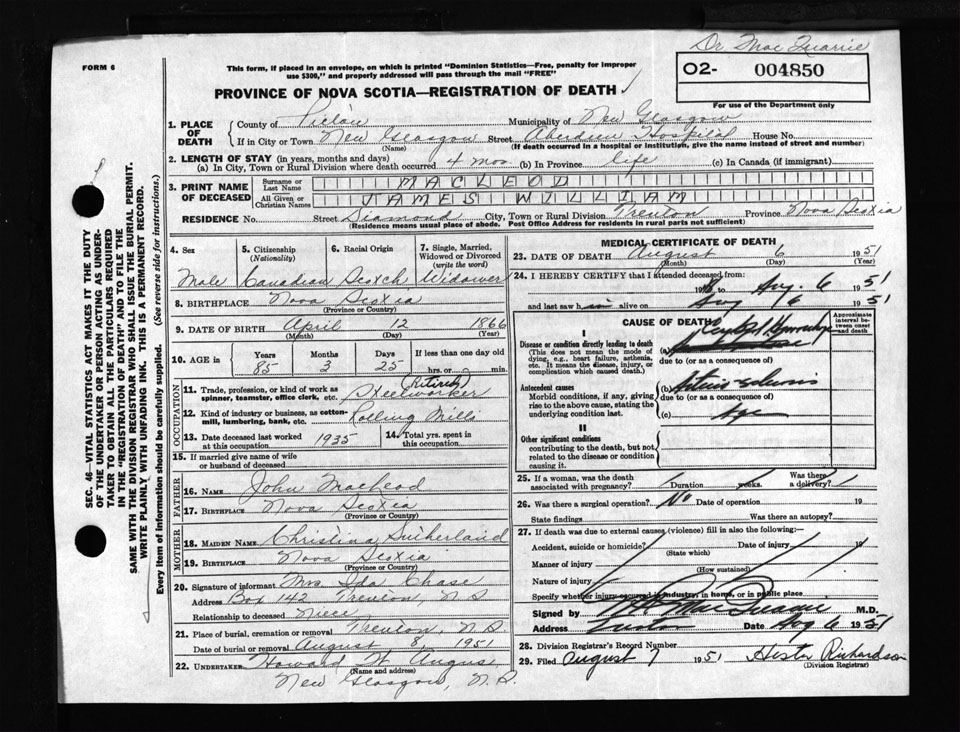 Dr. MacQuarrie
FORM 6
This form, if placed in an envelope, on which is printed "Dominion Statistics—Free, penalty for improper
use $300," and properly addressed will pass through the mail "FREE"
02- 004850
For use of the Department only
PROVINCE OF NOVA SCOTIA—REGISTRATION OF DEATH
1. PLACE OF DEATH
County of Pictou Municipality of New Glasgow
If in City or Town New Glasgow Street Aberdeen Hospital House No.
(Name) (If death occurred in a hospital or institution, give the name instead of street and number)
2. LENGTH OF STAY (in years, months and days)
(a) In City, Town or Rural Division where death occurred 4 mos. (b) In Province life (c) In Canada (if immigrant)
3. PRINT NAME OF DECEASED
Surname or Last Name MACLEOD
All Given or Christian Names JAMES WILLIAM
RESIDENCE No. Street Diamond City, Town or Rural Division Trenton Province Nova Scotia
(Residence means usual place of abode. Post Office Address for residents in rural parts not sufficient)
SEC. 46—VITAL STATISTICS ACT MAKES IT THE DUTY
OF THE UNDERTAKER OR PERSON ACTING AS UNDER-
TAKER TO OBTAIN ALL THE PARTICULARS REQUIRED
IN THE "REGISTRATION OF DEATH" AND TO FILE THE
SAME WITH THE DIVISION REGISTRAR WHO SHALL ISSUE THE BURIAL PERMIT.
WRITE PLAINLY WITH UNFADING INK. THIS IS A PERMANENT RECORD.
Every item of information should be carefully supplied. (See reverse side for instructions.)
4. Sex 5. Citizenship (Nationality) 6. Racial Origin 7. Single, Married, Widowed or Divorced (write the word)
Male Canadian Scotch Widower
8. BIRTHPLACE Nova Scotia
(Province or Country)
9. DATE OF BIRTH April 12 1866
(Month) (Day) (Year)
10. AGE in Years Months Days If less than one day old
85 3 25 hrs. or min.
OCCUPATION
11. Trade, profession, or kind of work as spinner, teamster, office clerk, etc. (Retired) Steelworker
12. Kind of industry or business, as cotton-mill, lumbering, bank, etc. Rolling Mills
13. Date deceased last worked at this occupation 1935 14. Total yrs. spent in this occupation
15. If married give name of wife or husband of deceased
FATHER
16. NAME John Macleod
17. BIRTHPLACE Nova Scotia
(Province or Country)
MOTHER
18. MAIDEN NAME Christina Sutherland
19. BIRTHPLACE Nova Scotia
(Province or Country)
20. Signature of informant Mrs Ida Chase
Address Box 142 Trenton, N.S
Relationship to deceased Niece
21. Place of burial, cremation or removal Trenton, N.S
Date of burial or removal August 8, 1951
22. UNDERTAKER Howard W. Angus
(Name and address)
New Glasgow, N.S.
MEDICAL CERTIFICATE OF DEATH
23. DATE OF DEATH August 6 1951
(Month) (Day) (Year)
24. I HEREBY CERTIFY that I attended deceased from:
19 to Aug. 6 1951
and last saw him alive on Aug 6 1951
CAUSE OF DEATH
Approximate interval between onset and death
I
Disease or condition directly leading to death
(This does not mean the mode of dying, e.g., heart failure, asthenia, etc. It means the disease, injury, or complication which caused death.)
(a)
due to (or as a consequence of)
Antecedent causes
Morbid conditions, if any, giving rise to the above cause, stating the underlying condition last.
(b)
due to (or as a consequence of)
(c) Age
II
Other significant conditions
contributing to the death, but not related to the disease or condition causing it.
25. If a woman, was the death associated with pregnancy? Duration weeks. Was there a delivery?
26. Was there a surgical operation? No Date of operation 19
State findings Was there an autopsy?
27. If death was due to external causes (violence) fill in also the following:—
Accident, suicide or homicide? Date of injury 19
(State which)
Manner of injury
(How sustained)
Nature of injury
Specify whether injury occurred in industry, in home, or in public place
Signed by MacQuarrie M.D.
Address Date Aug 6 1951
28. Division Registrar's Record Number
29. Filed August 7 1951 Hester Richardson
(Division Registrar)